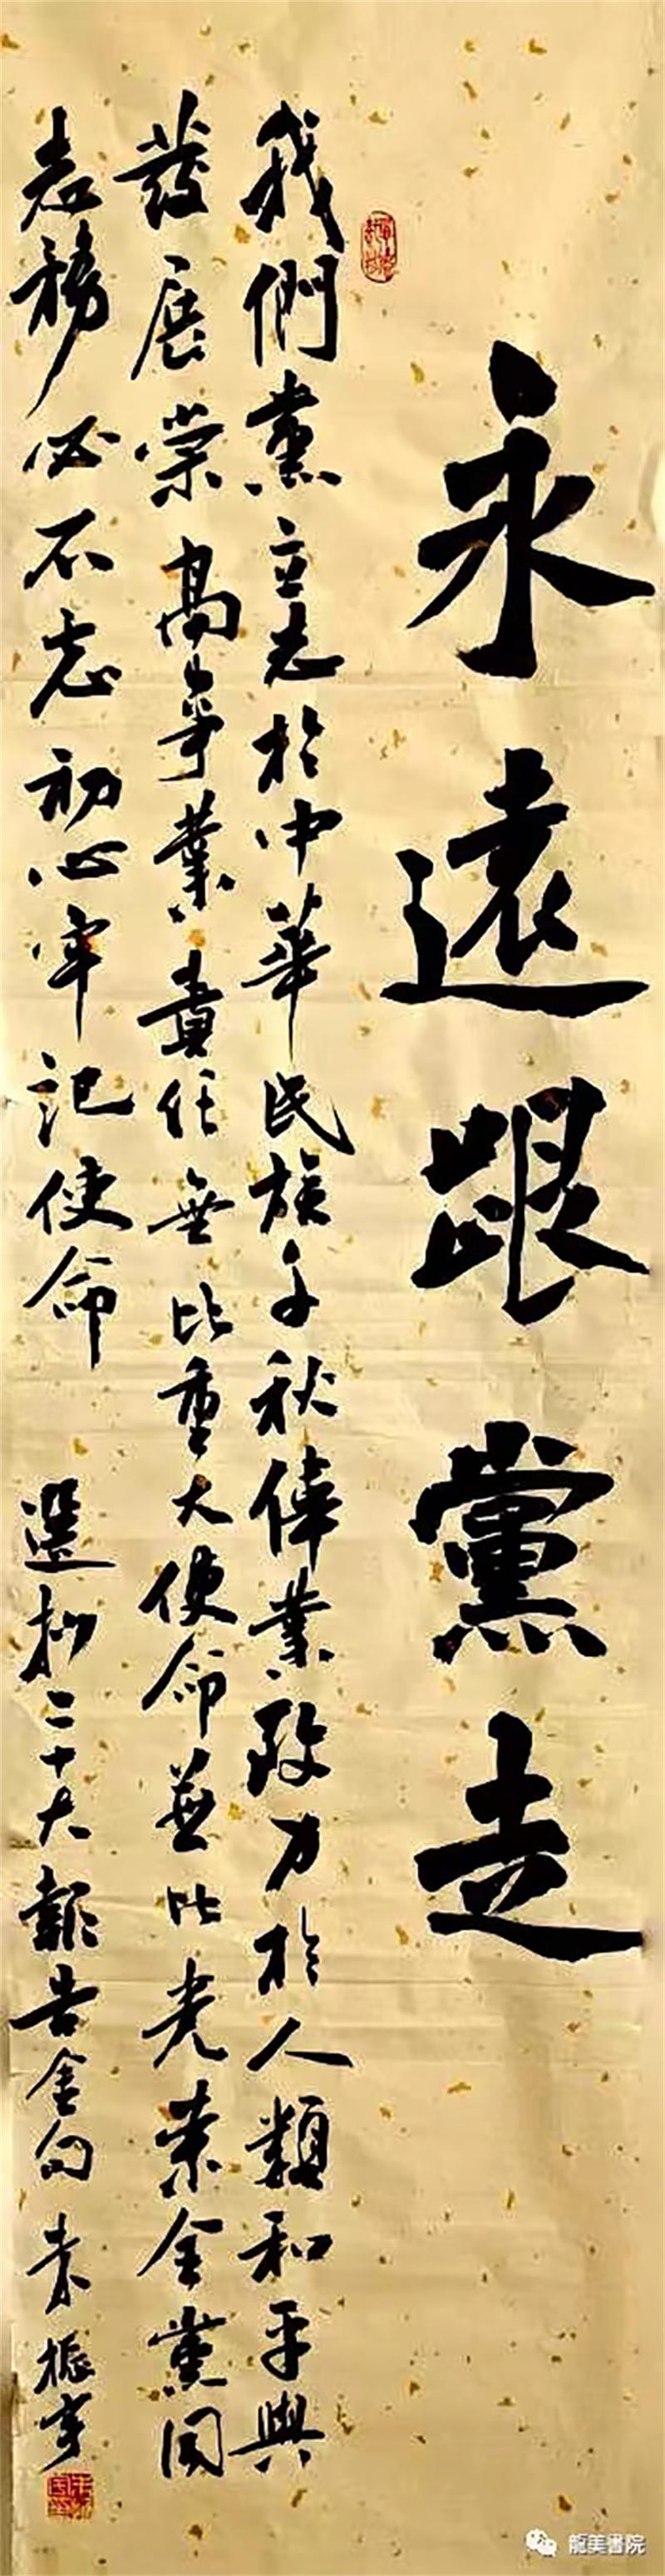 永遠跟黨走
我們黨立志於中華民族千秋偉業致力於人類和平與
發展崇高事業責任無比重大使命無比光榮全黨同
志務必不忘初心牢記使命 選抄二十大報告金句 袁振
龍美書院